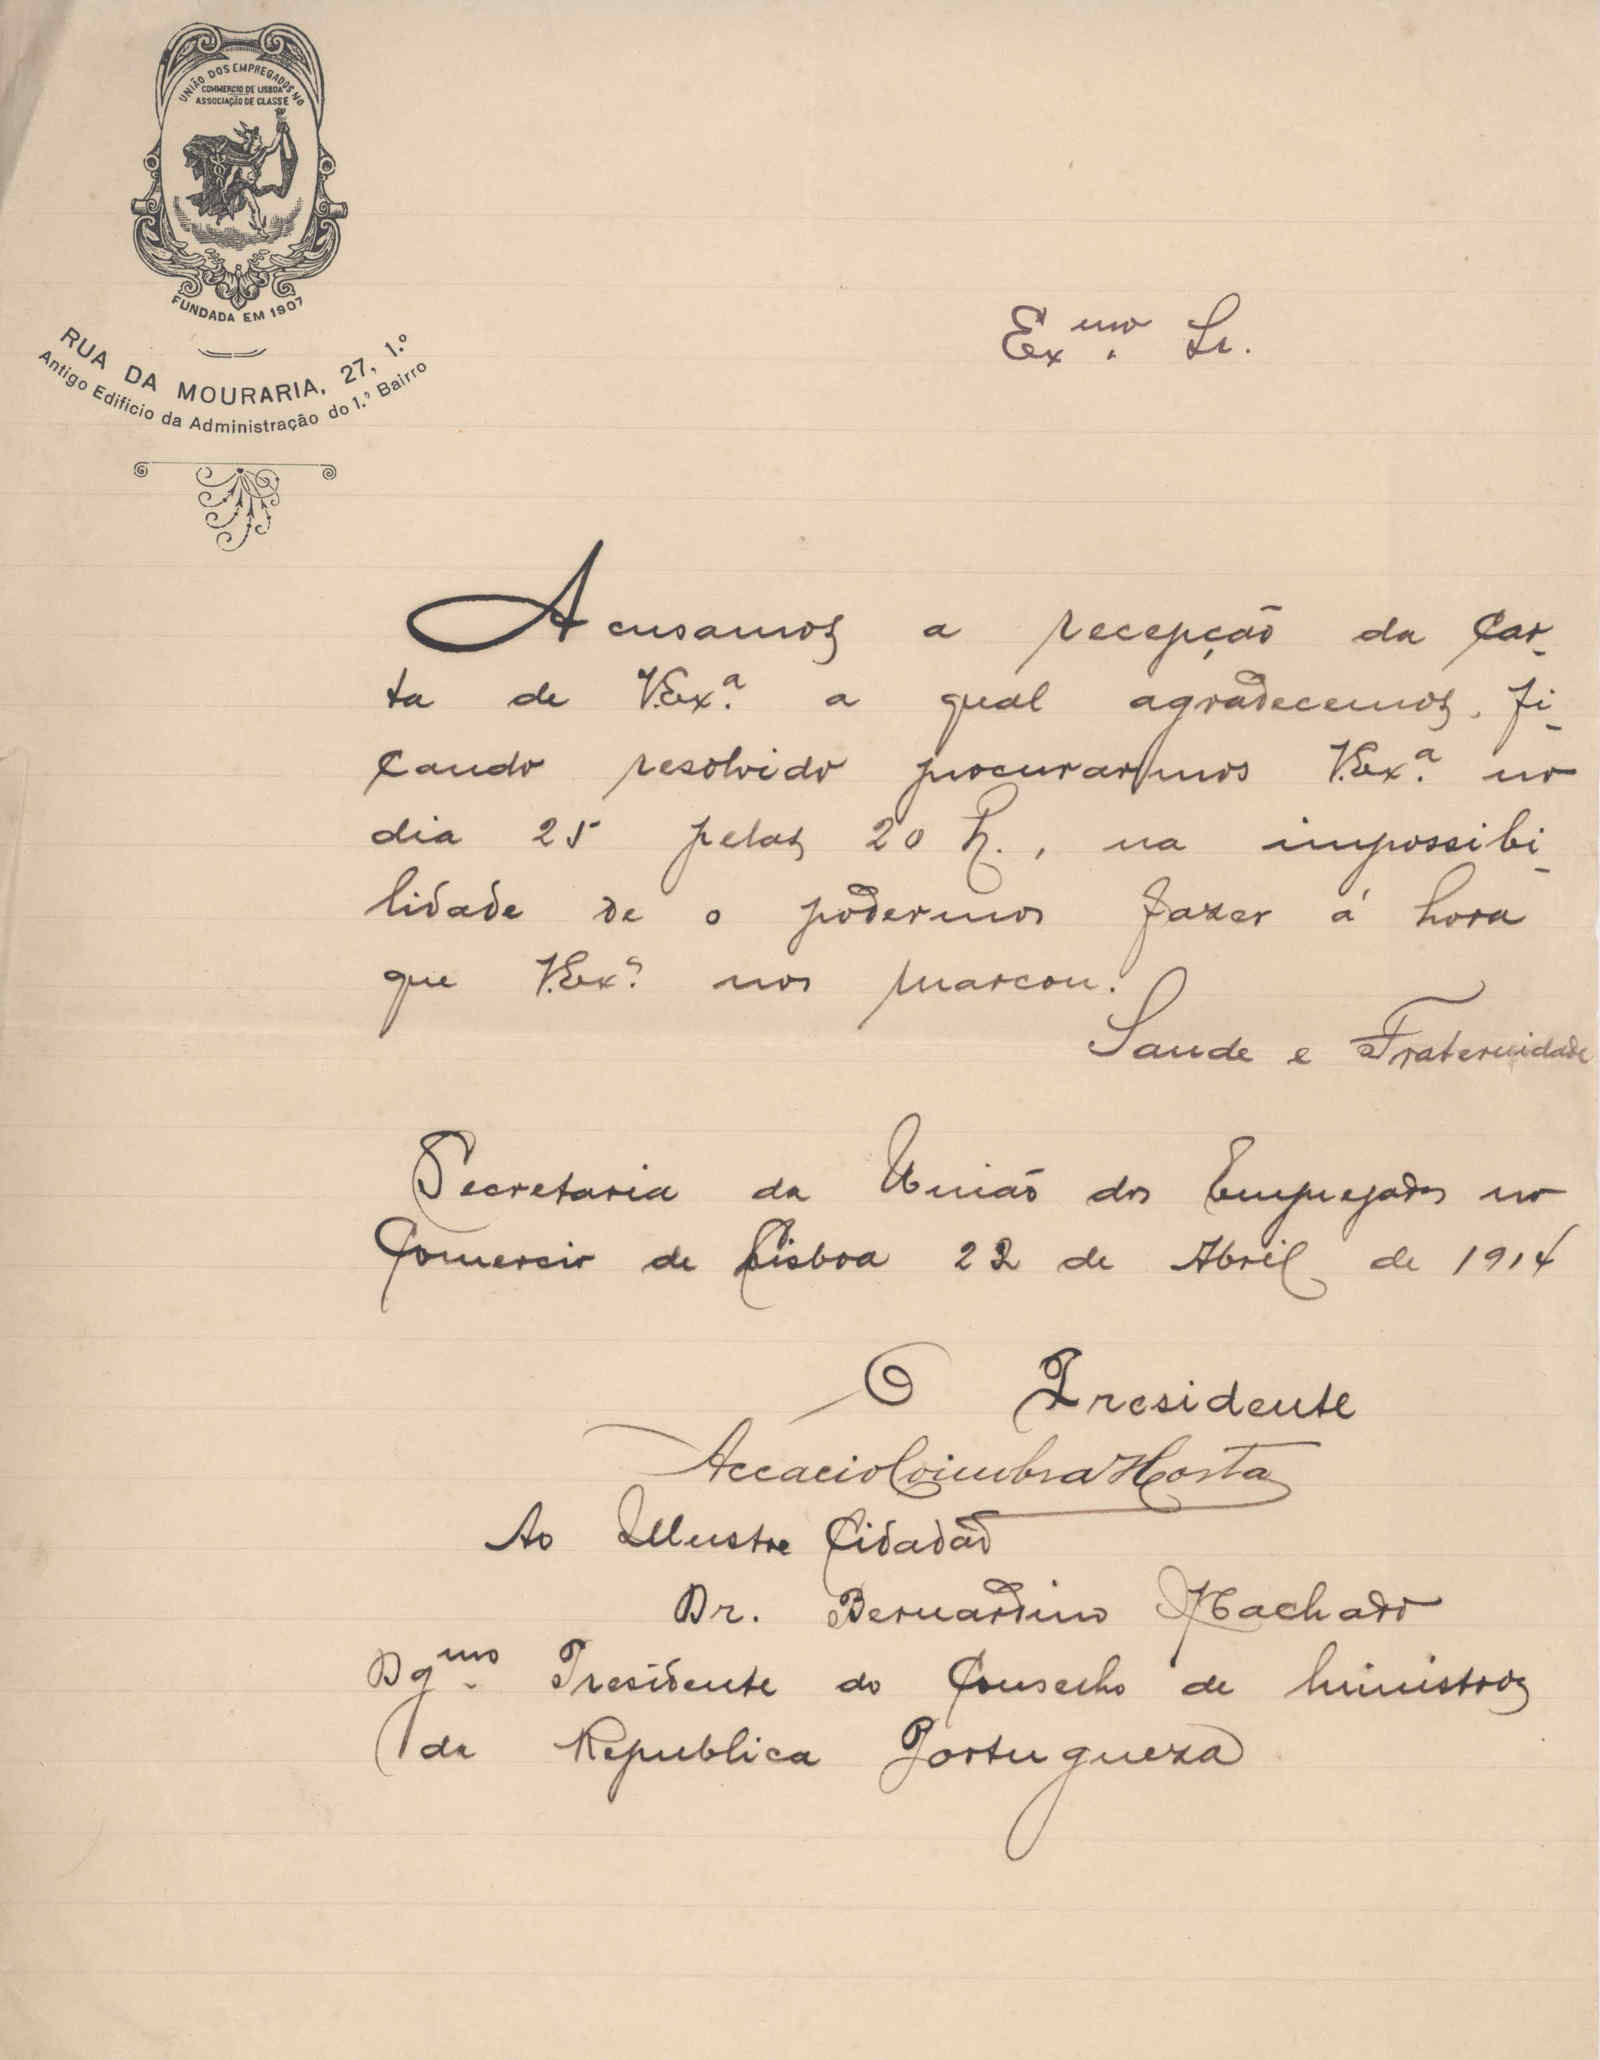 UNIÃO DOS EMPREGADOS NO
COMMERCIO DE LISBOA
ASSOCIAÇÃO DE CLASSE
FUNDADA EM 1907
RUA DA MOURARIA, 27, 1.º
Antigo Edificio da Administração do 1.º Bairro
Exmo. Sr.
Acusamos a recepção da car-
ta de V.Exª. a qual agradecemos, fi-
cando resolvido procurarmos V.Exª. no
dia 25 pelas 20 h., na impossibi-
lidade de o podermos fazer á hora
que V.Exª. nos marcou.
Saude e Fraternidade
Secretaria da União dos Empregados no
Comercio de Lisboa 22 de Abril de 1914
O Presidente
Accacio Coimbra Horta
Ao Illustre Cidadão
Dr. Bernardino Machado
Dgmo. Presidente do Conselho de Ministros
da Republica Portugueza